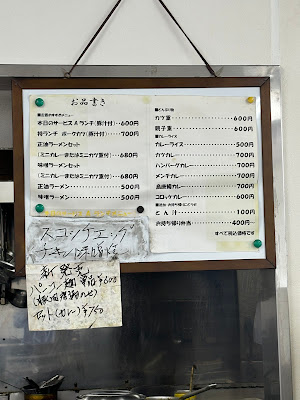 お品書き
本日のサービスAランチ(豚汁付)‥600円
特ランチ ポークカツ(豚汁付)‥‥700円
正油ラーメンセット
(ミニカレーまたはミニカツ重付)‥680円
味噌ラーメンセット
(ミニカレーまたはミニカツ重付)‥680円
正油ラーメン‥‥500円
味噌ラーメン‥‥500円
カツ重‥‥600円
親子重‥‥600円
■カレーライス
カレーライス‥‥500円
カツカレー‥‥700円
ハンバーグカレー‥‥700円
メンチカレー‥‥700円
唐揚げカレー‥‥700円
コロッケカレー‥‥600円
とん汁‥‥100円
お持ち帰り弁当‥‥400円~
すべて税込価格です
スコッチエッグ
チキン
新発売
¥600
セット(カレー)¥750